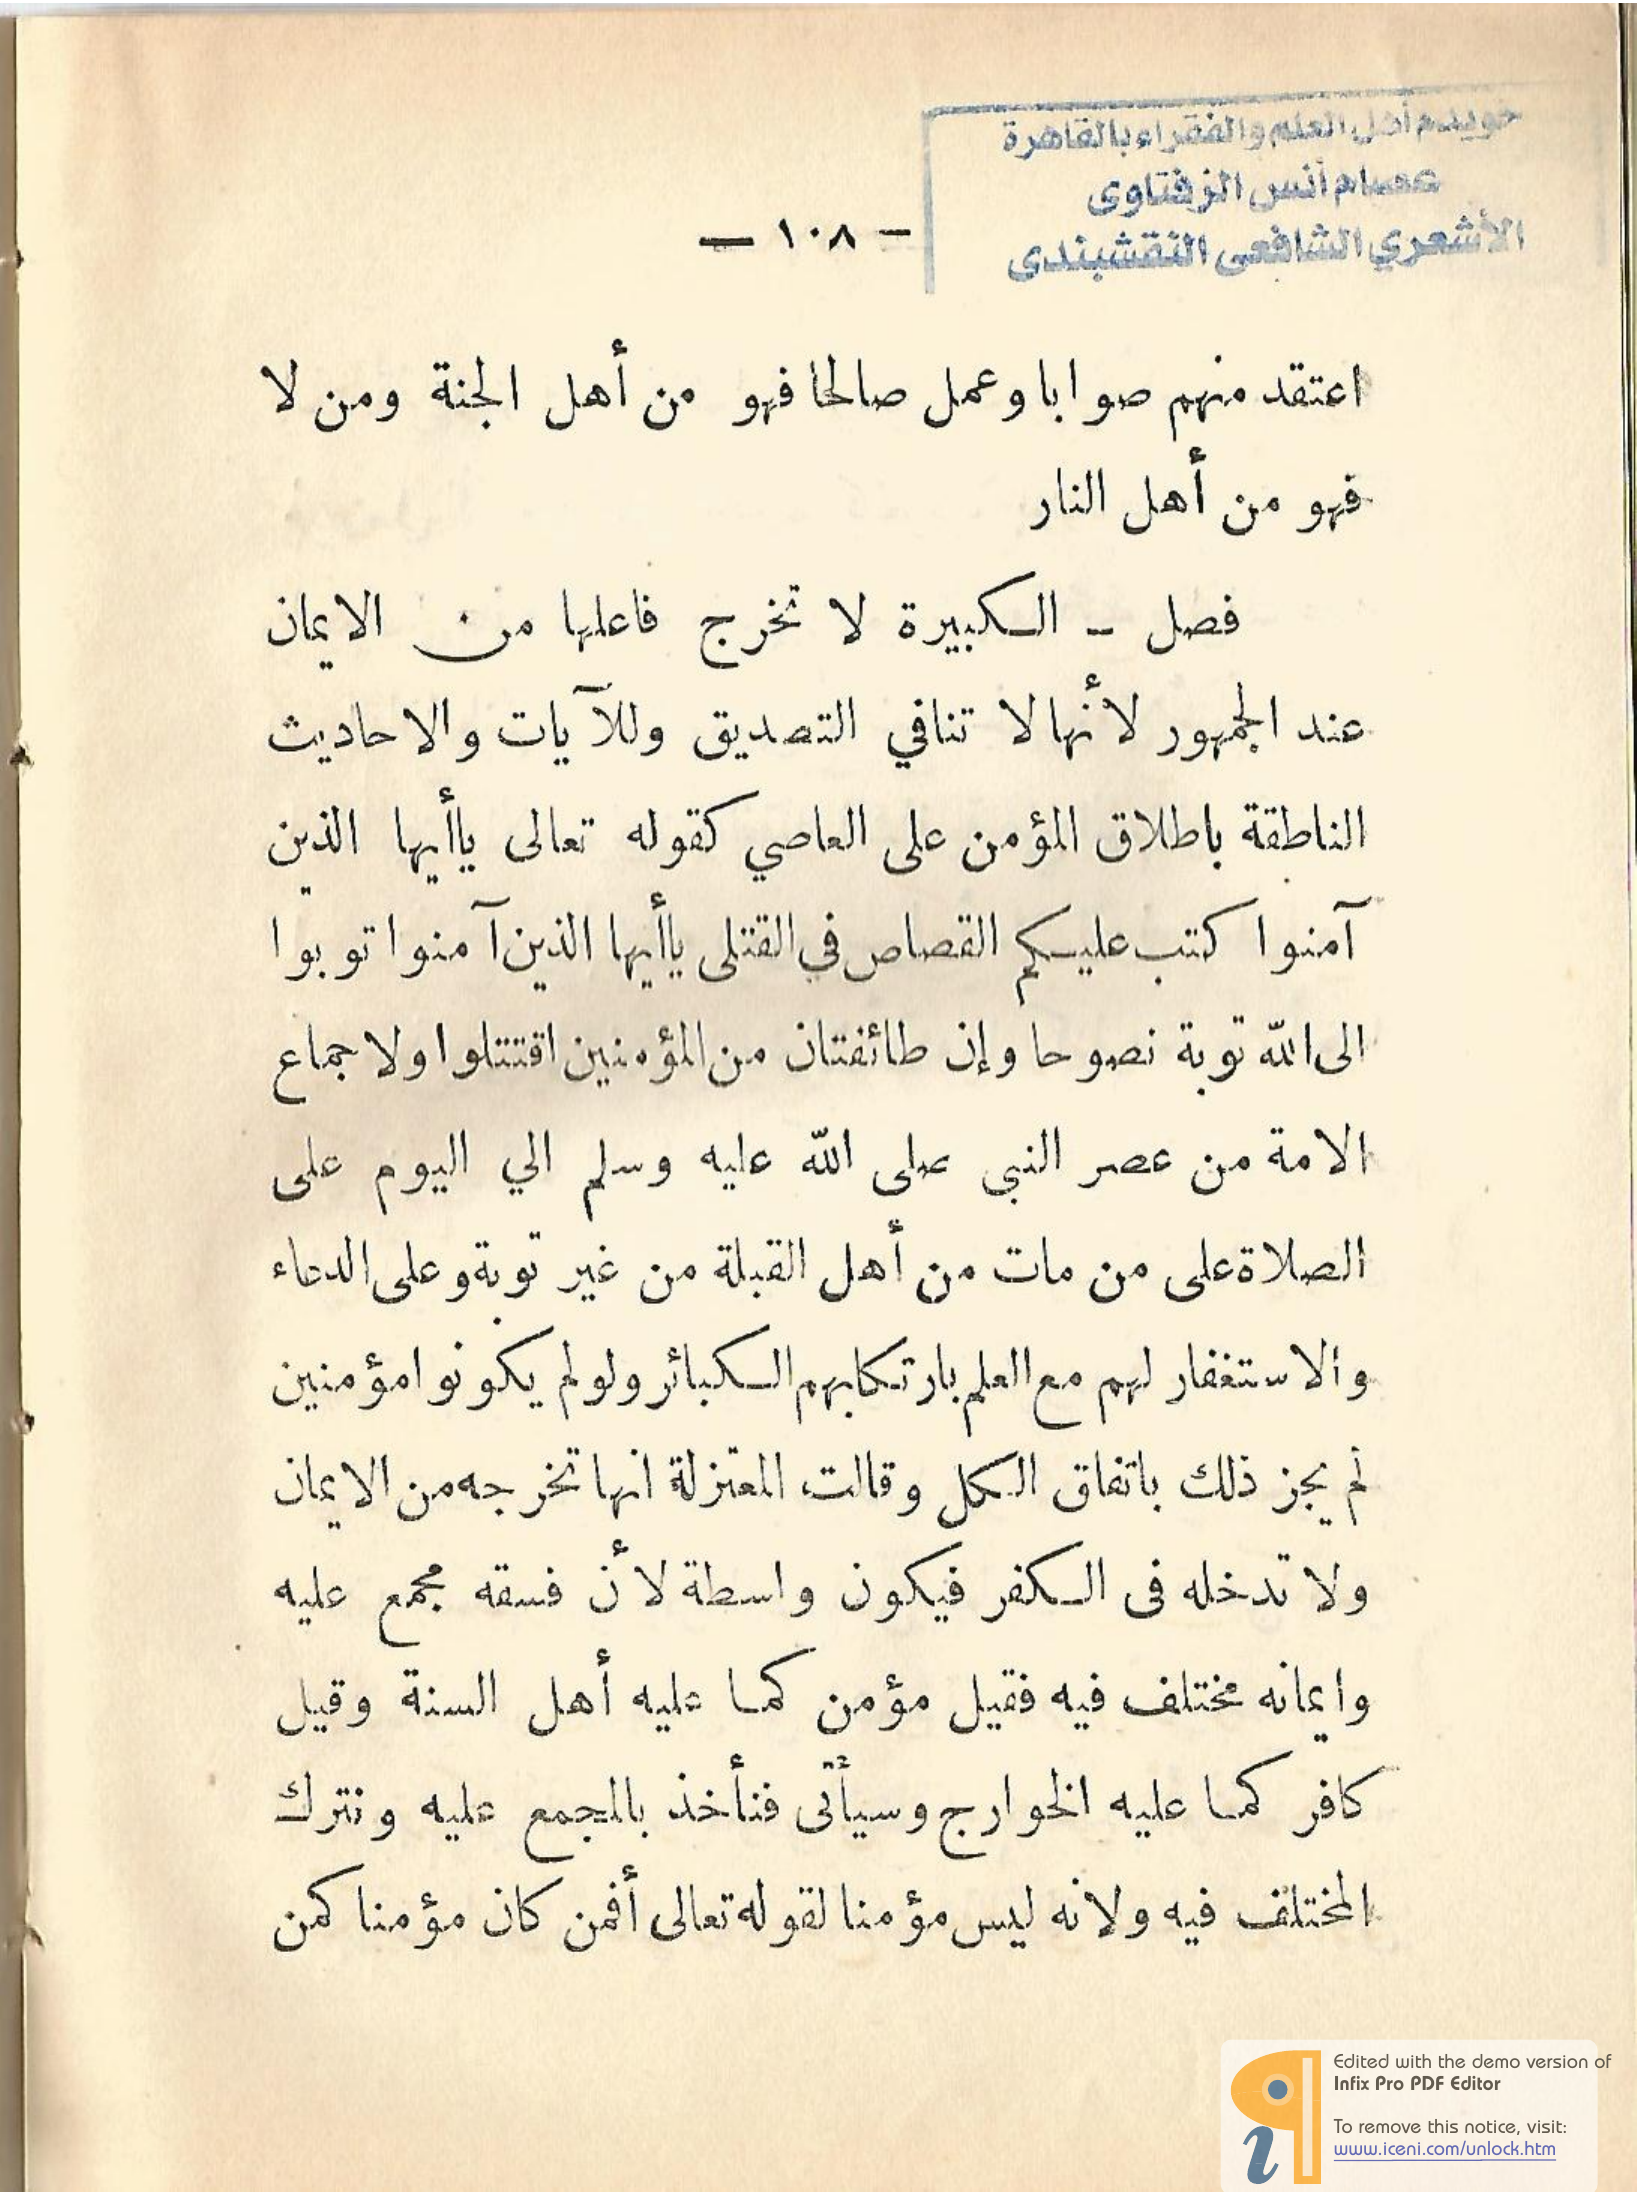 خويدم أهل العلم والفقراء بالقاهرة
عصام أنس الزفتاوى
الأشعري الشافعى النقشبندى
— ١٠٨ —
اعتقد منهم صوابا وعمل صالحا فهو من أهل الجنة ومن لا
فهو من أهل النار
فصل – الكبيرة لا تخرج فاعلها من الايمان
عند الجمهور لأنها لا تنافي التصديق وللآيات والاحاديث
الناطقة باطلاق المؤمن على العاصي كقوله تعالى ياأيها الذين
آمنوا كتب عليكم القصاص في القتلى ياأيها الذين آمنوا توبوا
الى الله توبة نصوحا وإن طائفتان من المؤمنين اقتتلوا ولاجماع
الامة من عصر النبى صلى الله عليه وسلم الي اليوم على
الصلاة على من مات من أهل القبلة من غير توبة وعلى الدعاء
والاستغفار لهم مع العلم بارتكابهم الكبائر ولو لم يكونوا مؤمنين
لم يجز ذلك باتفاق الكل وقالت المعتزلة انها تخرجه من الايمان
ولا تدخله فى الكفر فيكون واسطة لأن فسقه مجمع عليه
وايمانه مختلف فيه فقيل مؤمن كما عليه أهل السنة وقيل
كافر كما عليه الخوارج وسيأتى فنأخذ بالمجمع عليه ونترك
المختلف فيه ولانه ليس مؤمنا لقوله تعالى أفمن كان مؤمنا كمن
Edited with the demo version of
Infix Pro PDF Editor
To remove this notice, visit:
www.iceni.com/unlock.htm